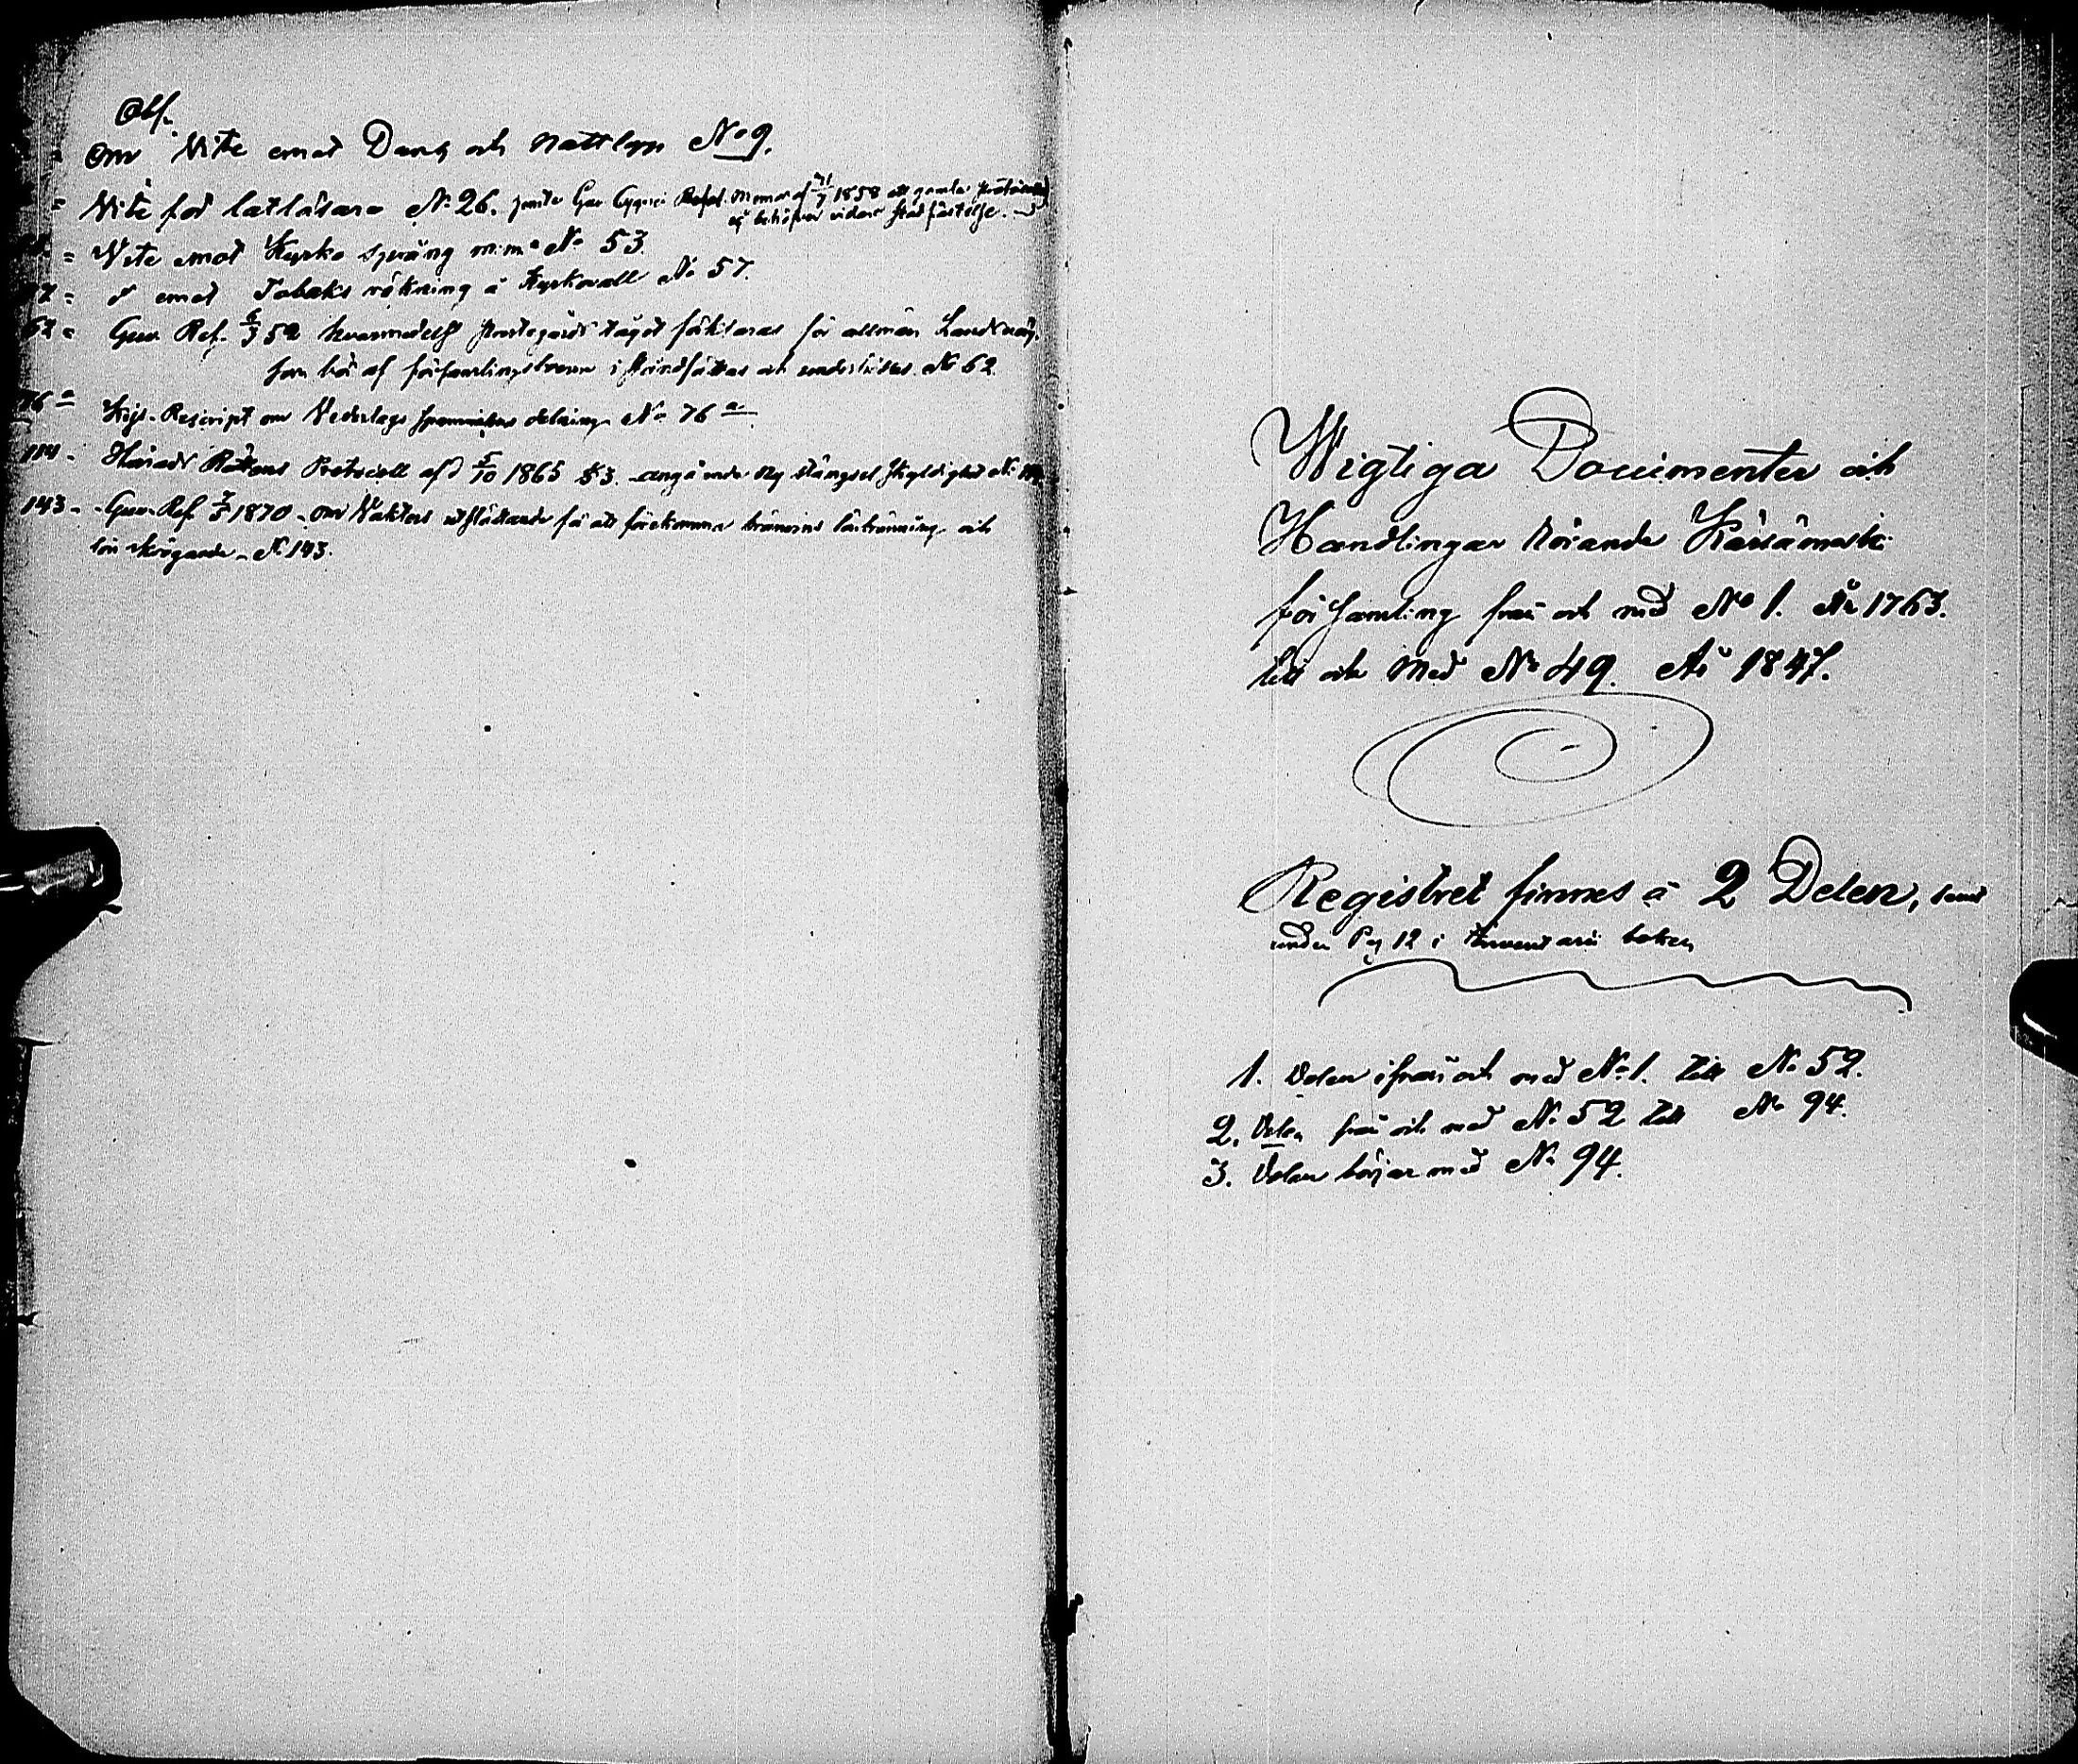 Obs.
Om Vite emot Dans och Nattlopp No 9.
= Vite för latläsare No 26. jemte Guv. Cygnei Refol. Memor af 21/7 1858 att gamla
ej behöfver vidare stadfästelse.
= Vite emot Kyrko språng m.m. No 53.
57 = d:o emot Tobaks rökning å Kyrkovall No 57.
62 = Guv. Ref. 6/3 52 hvarmedelst prestegårds tåget förklaras för allmän Landsväg,
som bör af församlingsboerne i ståndsättas och underhållas. No 62.
76 a Kejs. Rescript om Nederlags spanmålens delning No 76 a
114 - Härads Rättens Protocoll af d 5/10 1865 § 3. angående Ny stängsel skyldighet No
143 - Guv. Ref. 7/3 1870 - om Vakters utställande för att förekomma bränvins bränning och
lönkrögande - No 143.
Wigtiga Documenter och
Handlingar Rörande Kärsämäki
församling från och med No 1. År 1763.
till och Med No 49. År 1847.
Registret finnes i 2 Delen, samt
under Pag 12 i Inventarii boken
1. Delen ifrån och med No 1. till No 52.
2. Delen från och med No 52 till No 94.
3. Delen börjar med No 94.